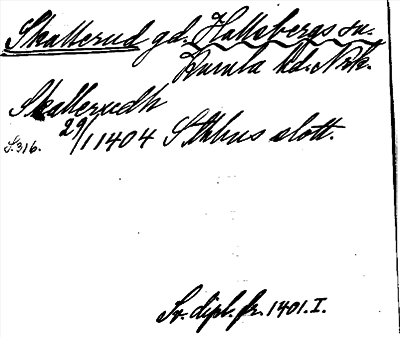 Skallerud gd. Hallsbergs sn.
Kumla hd. Nrk.
Skallerudh
S.316. 29/1 1404 Sthlms slott.
Sv. dipl. fr. 1401. I.